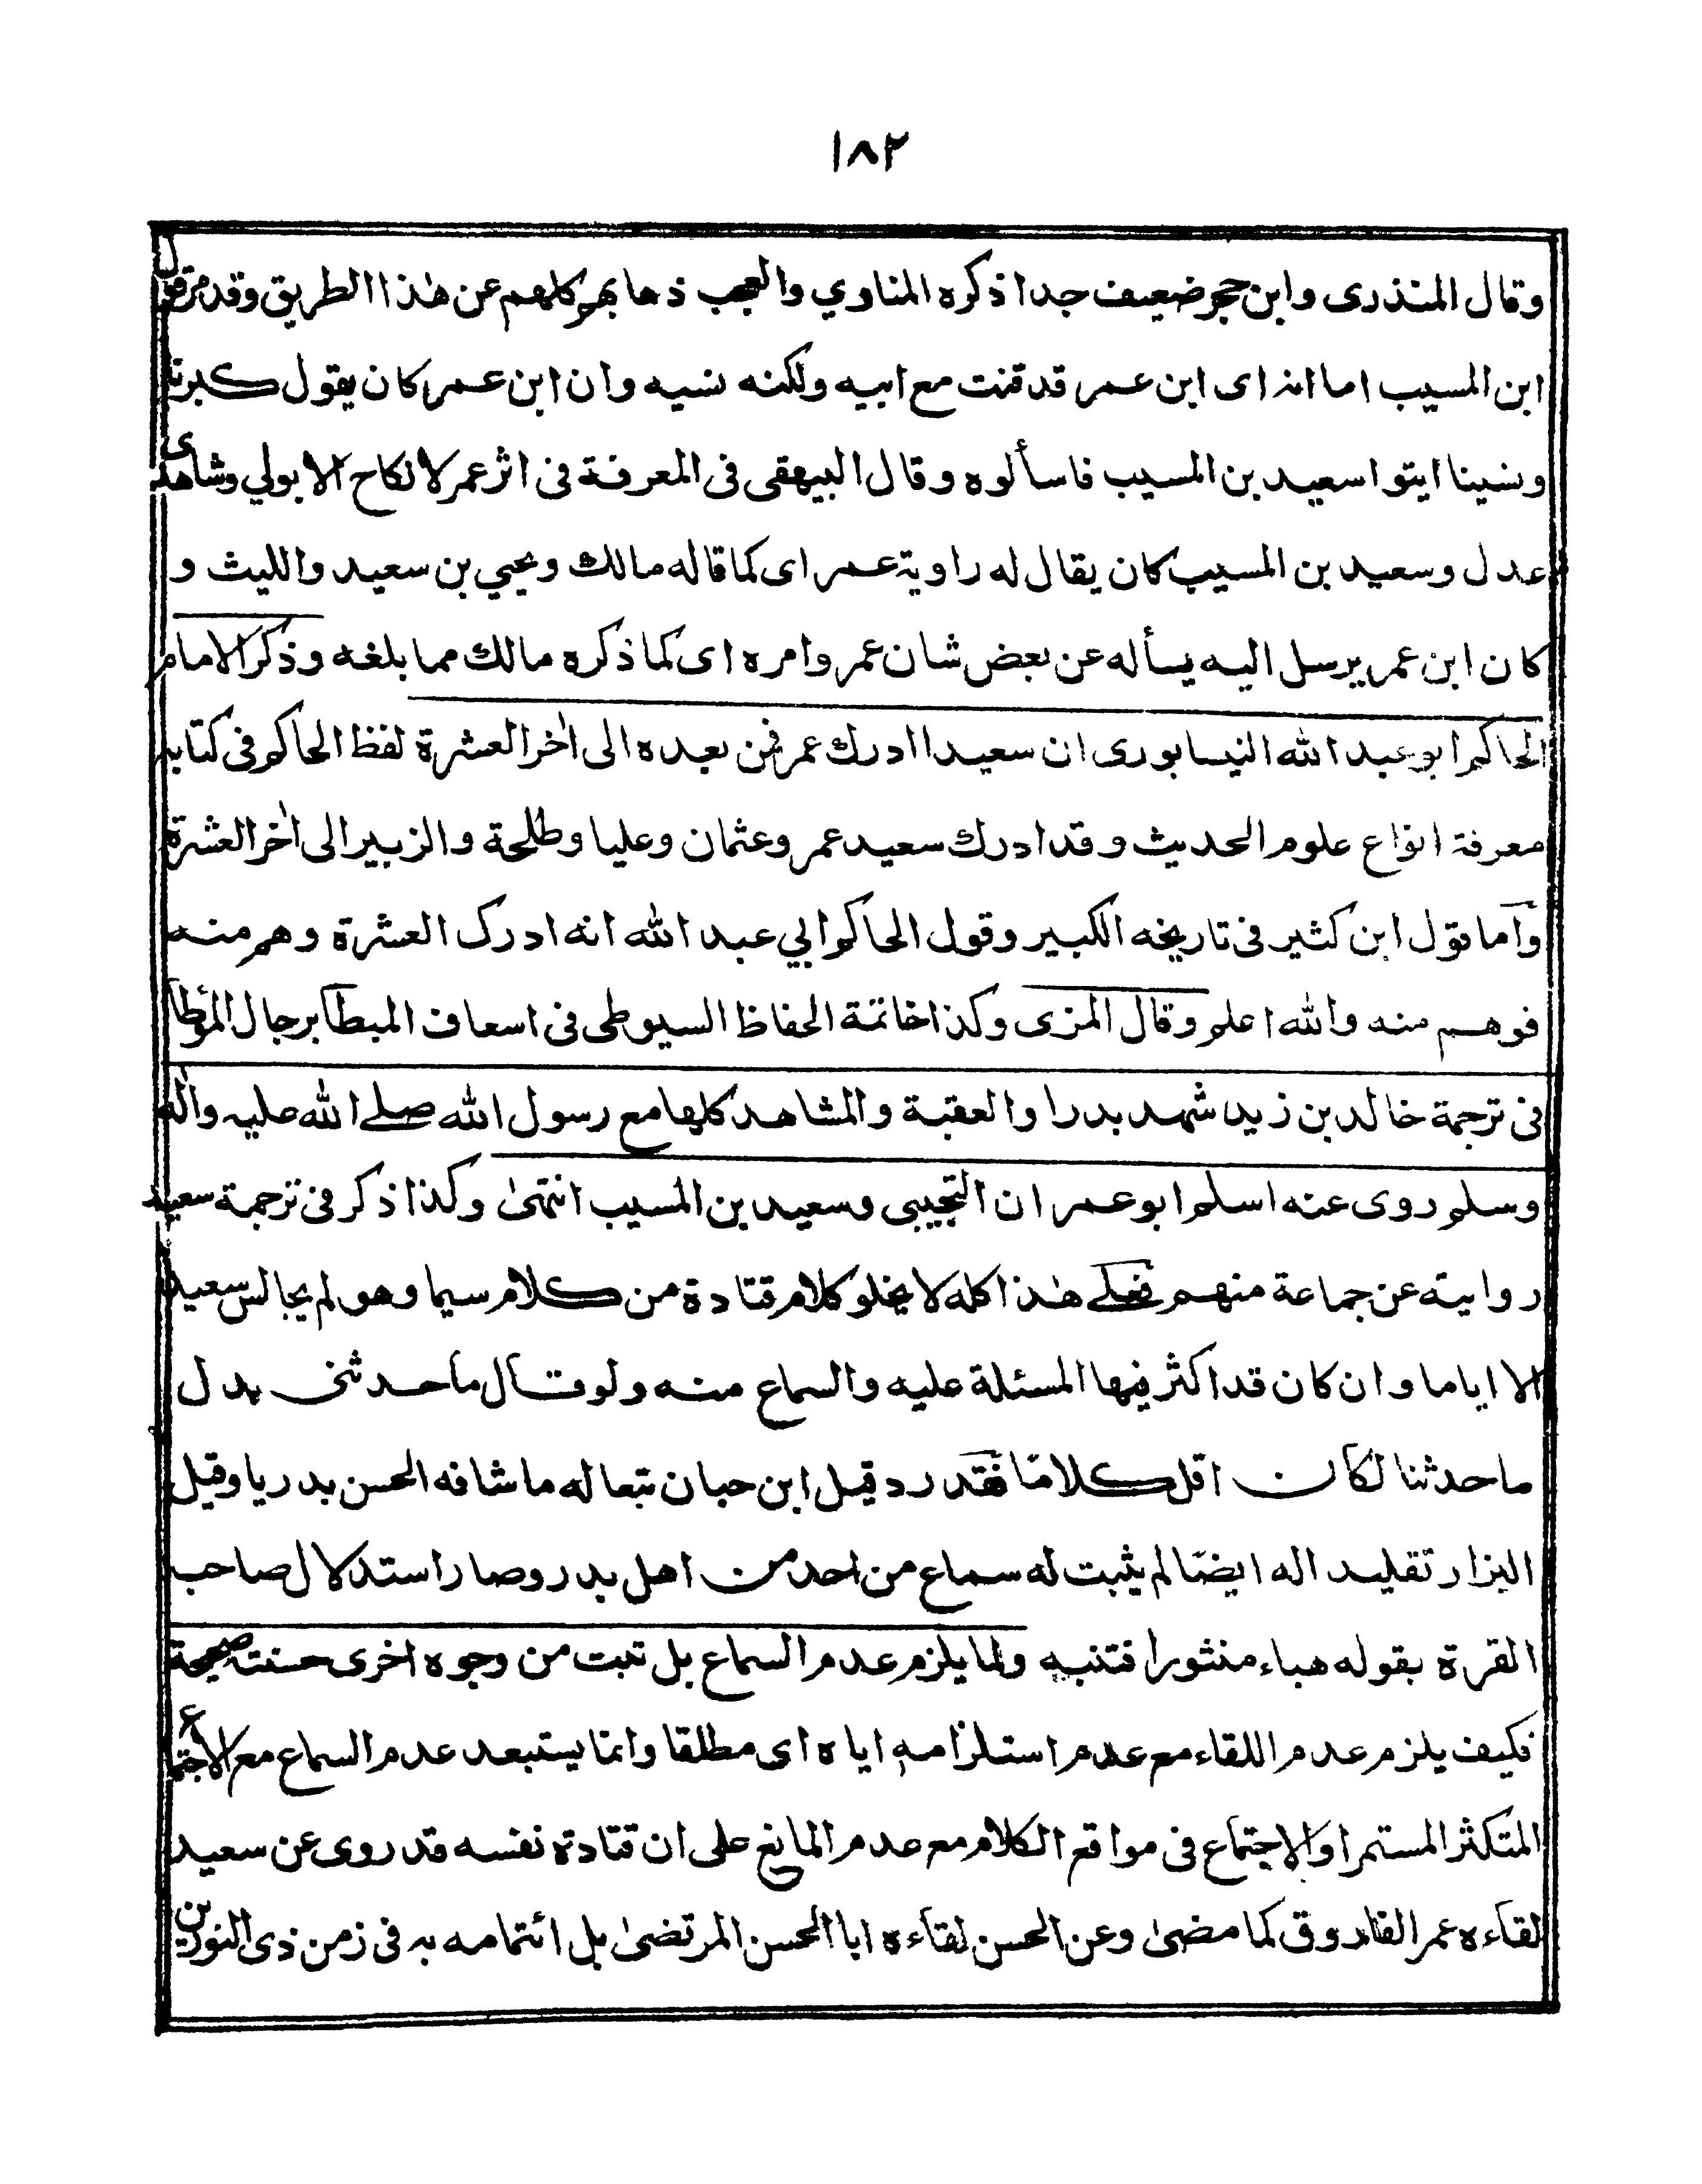 ١٨٢
وقال المنذرى وابن حجر ضعيف جدا ذكره المناوي والعجب ذهابهم كلهم عن هٰذا الطريق وقد مر قول
ابن المسيب اما انه اى ابن عمر قد قنت مع ابيه ولكنه نسيه وان ابن عمر كان يقول كبرنا
ونسينا ايتوا سعيد بن المسيب فاسألوه وقال البيهقى فى المعرفة فى اثر عمر لا نكاح الا بولي وشاهدى
عدل وسعيد بن المسيب كان يقال له راوية عمر اى كما قاله مالك ويحيي بن سعيد والليث و
كان ابن عمر يرسل اليه يسأله عن بعض شان عمر وامره اى كما ذكره مالك مما بلغه وذكر الامام
الحاكم ابو عبد الله النيسابورى ان سعيدا ادرك عمر فمن بعده الى اٰخر العشرة لفظ الحاكم فى كتابه
معرفة انواع علوم الحديث وقد ادرك سعيد عمر وعثمان وعليا وطلحة والزبير الى اٰخر العشرة
وآما قول ابن كثير فى تاريخه الكبير وقول الحاكم ابي عبد الله انه ادرك العشرة وهم منه
فوهم منه والله اعلم وقال المزى وكذا خاتمة الحفاظ السيوطى فى اسعاف المبطأ برجال المؤطا
فى ترجمة خالد بن زيد شهد بدرا والعقبة والمشاهد كلها مع رسول الله صلے الله عليه واٰله
وسلم روى عنه اسلم ابو عمران التجيبى وسعيد بن المسيب انتهىٰ وكذا ذكر فى ترجمة سعيد
روايته عن جماعة منهم فعلے هٰذا كله لا يخلو كلام قتادة من كلام سيما وهو لم يجالس سعيد
الا اياما وان كان قد اكثر فيها المسئلة عليه والسماع منه ولو قال ما حدثنى بدل
ما حدثنا لكان اقل كلاما فقد رد قيل ابن حبان تبعا له ما شافه الحسن بدريا وقيل
البزار تقليد اله ايضًا لم يثبت له سماع من احد من اهل بدر وصار استدلال صاحب
القرة بقوله هباء منثورا فتنبه ولما يلزم عدم السماع بل ثبت من وجوه اخرى حسنة صحيحة
فكيف يلزم عدم اللقاء مع عدم استلزامه اياه اى مطلقا وانما يستبعد عدم السماع مع الاجتماع
المتكثر المستمر او الاجتماع فى مواقع الكلام مع عدم المانع على ان قتادة نفسه قد روى عن سعيد
لقاءه عمر الفاروق كما مضىٰ وعن الحسن لقاءه ابا الحسن المرتضىٰ بل ائتمامه به فى زمن ذى النورين